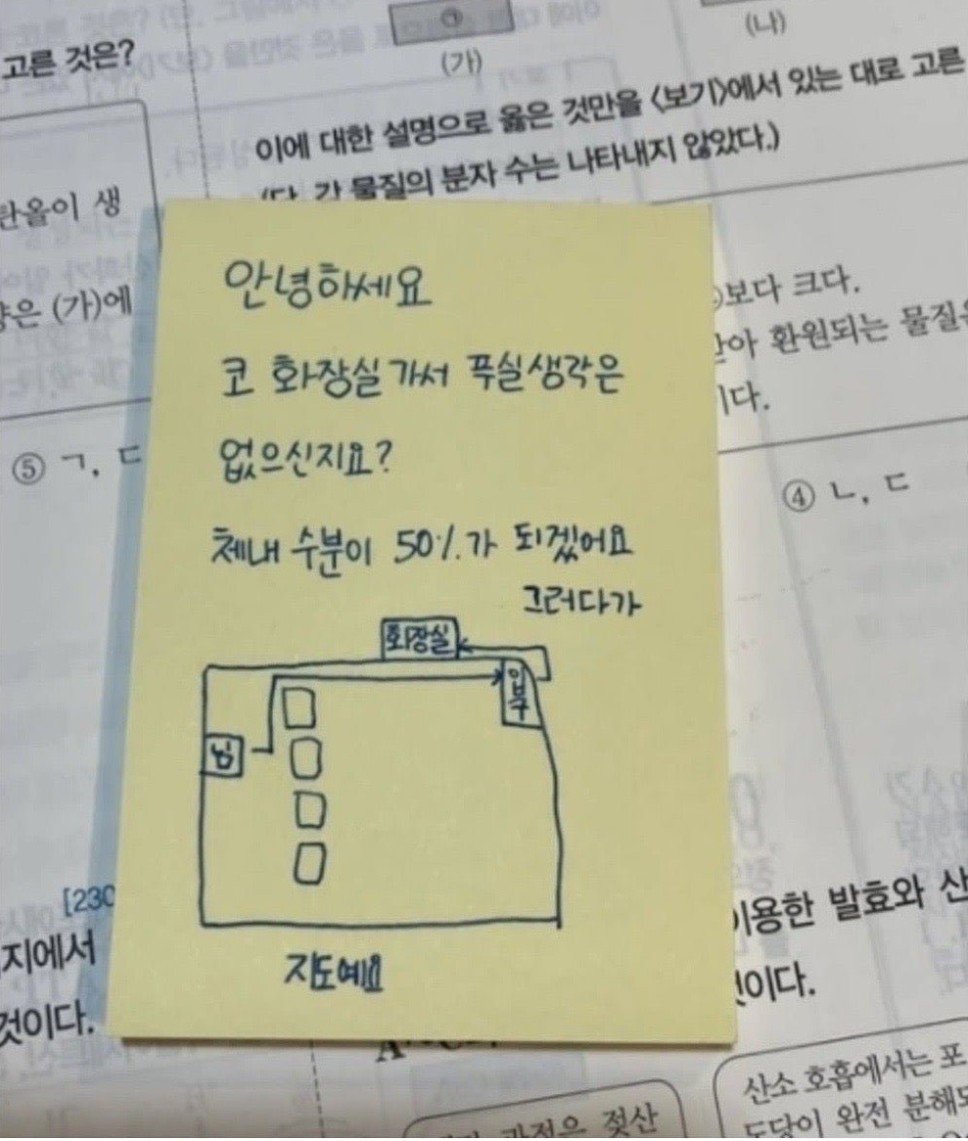 고른 것은?
㉠
(가)
(나)
이에 대한 설명으로 옳은 것만을 <보기>에서 있는 대로 고른
(단, 각 물질의 분자 수는 나타내지 않았다.)
탄올이 생
(가)에
⑤ ㄱ, ㄷ
안녕하세요
코 화장실가서 푸실생각은
없으신지요?
체내 수분이 50%가 되겠어요
그러다가
화장실
입구
님
지도예요
보다 크다.
환원되는 물질은
이다.
④ ㄴ, ㄷ
[230
지에서
것이다.
이용한 발효와 산
것이다.
과정은 젖산
산소 호흡에서는 포
도당이 완전 분해되